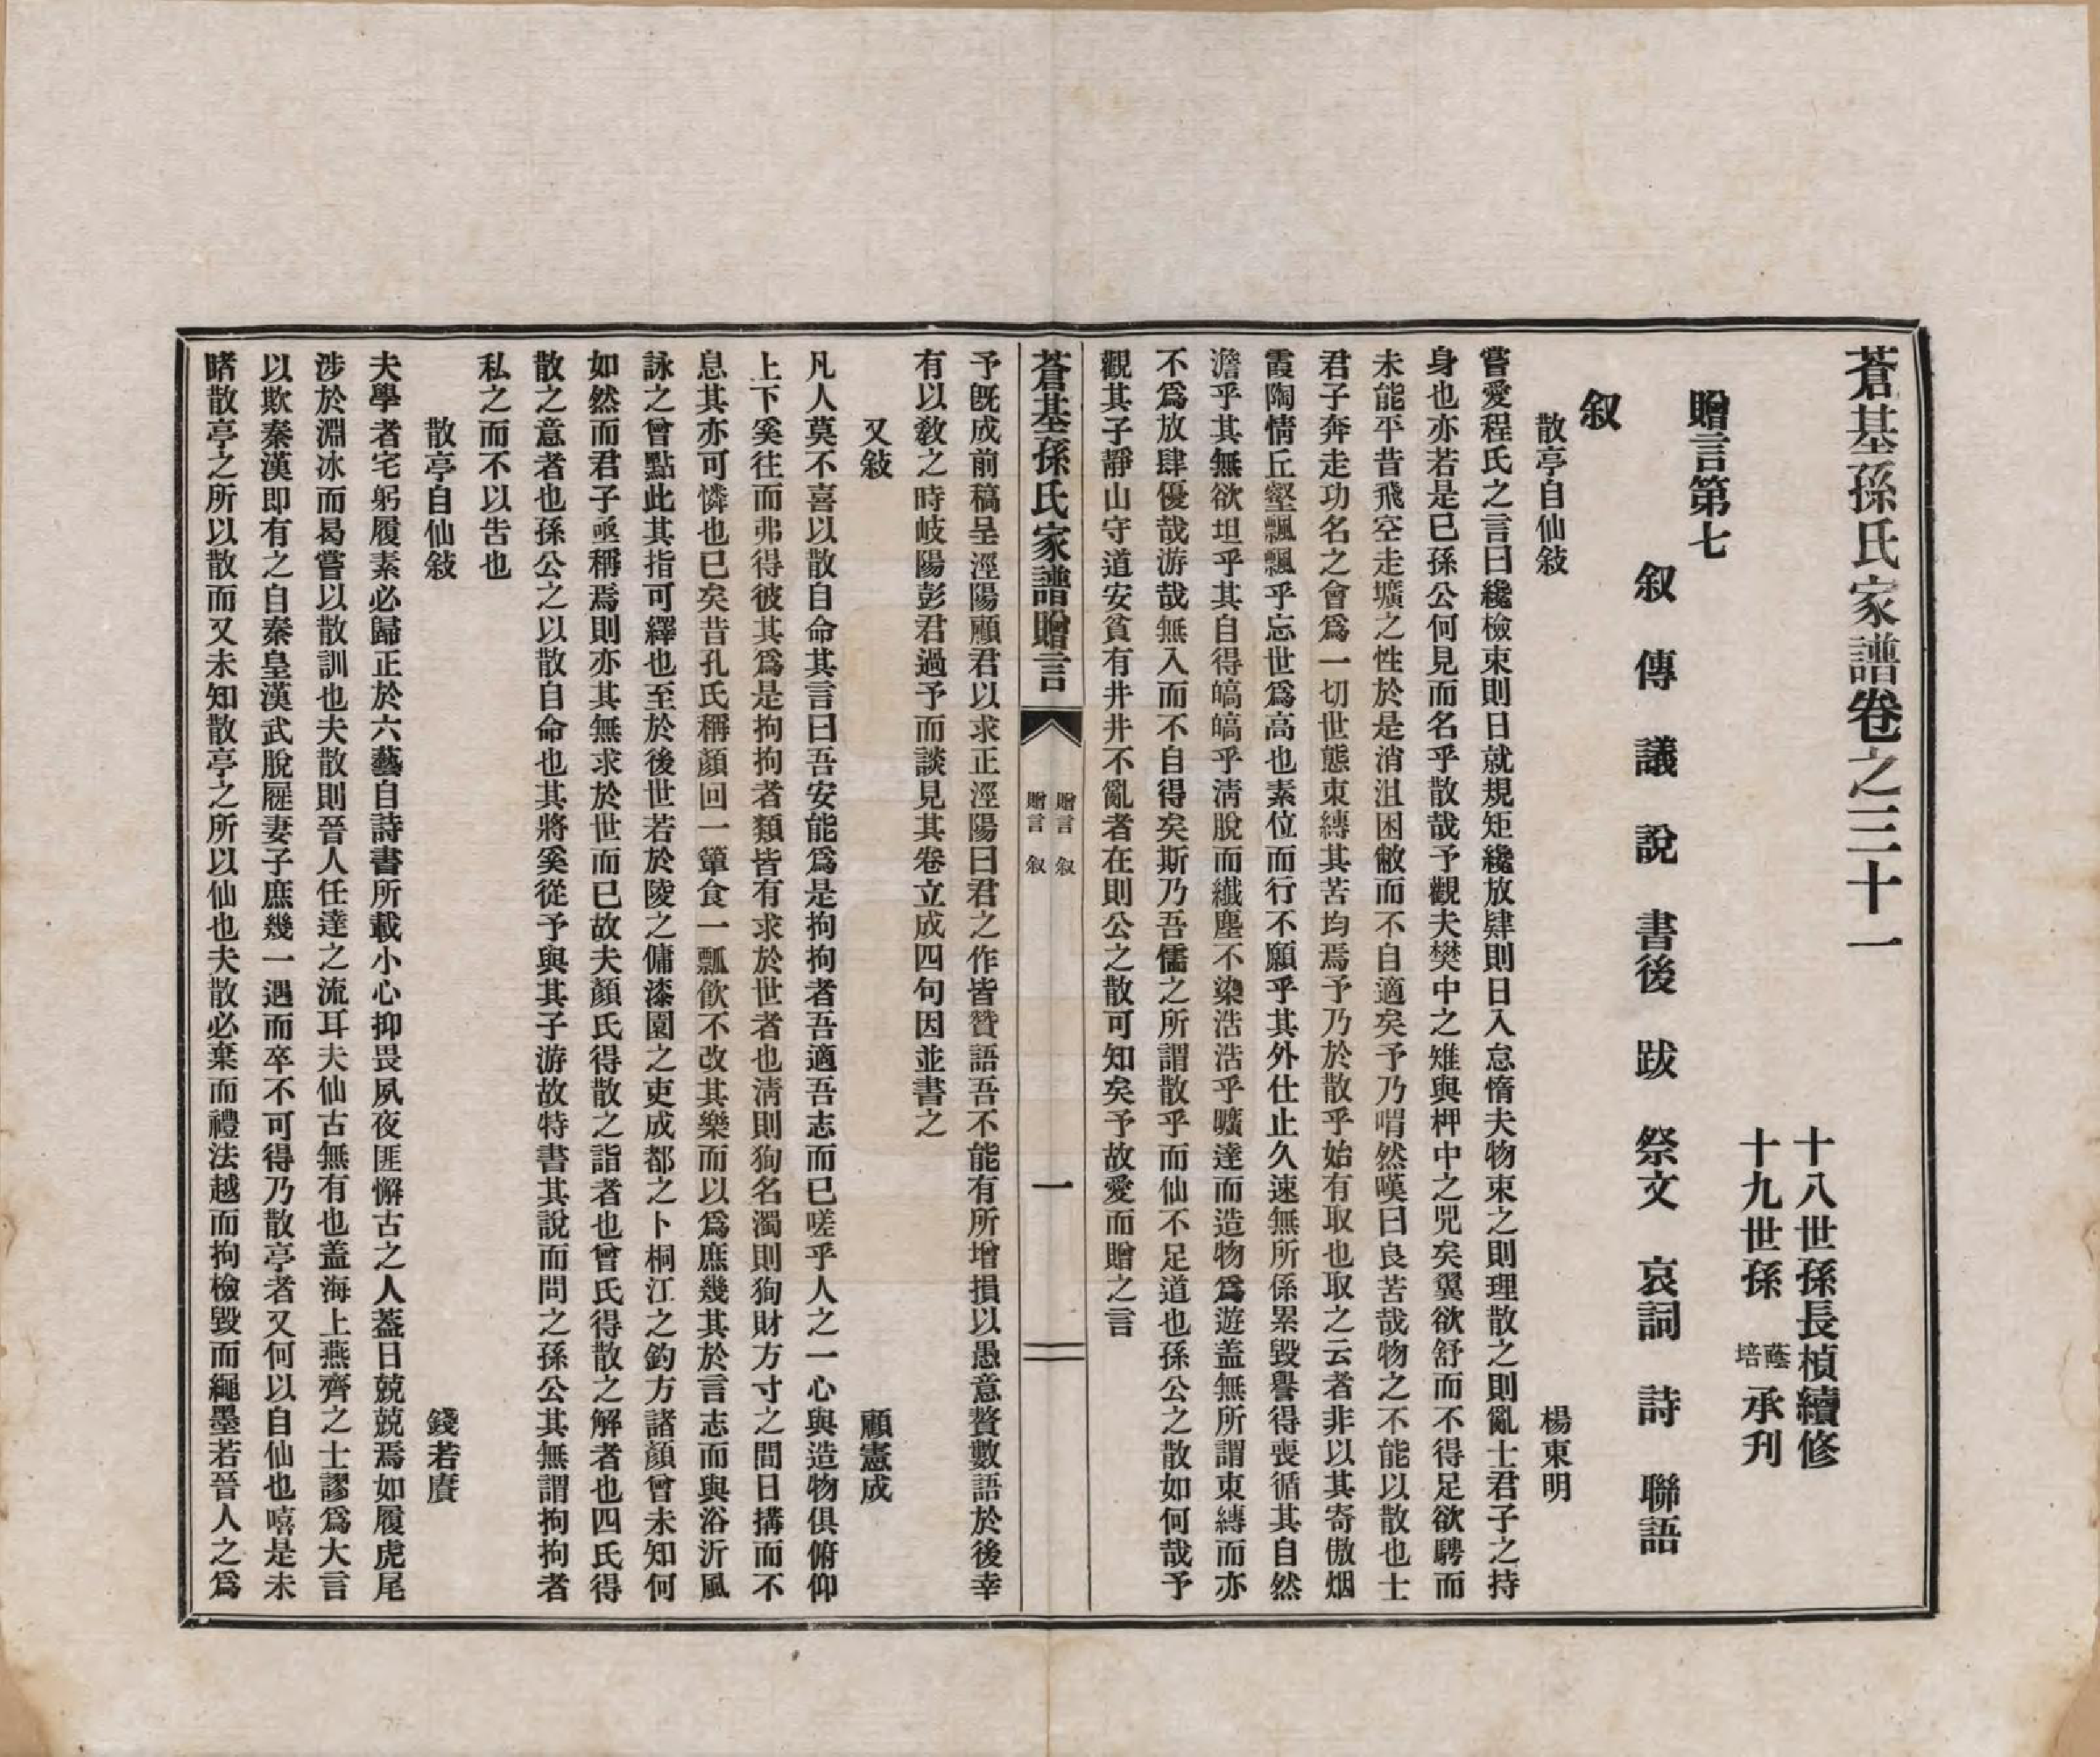 蒼基孫氏家譜卷之三十一
十八世孫長楨續修
十九世孫 蔭培 承刊
贈言第七
叙 傳 議 說 書後 跋 祭文 哀詞 詩 聯語
叙
散亭自仙敍 楊東明
嘗愛程氏之言曰纔檢束則日就規矩纔放肆則日入怠惰夫物束之則理散之則亂士君子之持
身也亦若是已孫公何見而名乎散哉予觀夫樊中之雉與柙中之兕矣翼欲舒而不得足欲騁而
未能平昔飛空走壙之性於是消沮困敝而不自適矣予乃喟然嘆曰良苦哉物之不能以散也士
君子奔走功名之會爲一切世態束縛其苦均焉予乃於散乎始有取也取之云者非以其寄傲烟
霞陶情丘壑飄飄乎忘世爲高也素位而行不願乎其外仕止久速無所係累毀譽得喪循其自然
澹乎其無欲坦乎其自得皜皜乎淸脫而纖塵不染浩浩乎曠達而造物爲遊盖無所謂束縛而亦
不爲放肆優哉游哉無入而不自得矣斯乃吾儒之所謂散乎而仙不足道也孫公之散如何哉予
觀其子靜山守道安貧有井井不亂者在則公之散可知矣予故愛而贈之言
蒼基孫氏家譜贈言
贈言 叙
贈言 叙
一
予旣成前稿呈涇陽顧君以求正涇陽曰君之作皆贊語吾不能有所增損以愚意贅數語於後幸
有以敎之時岐陽彭君過予而談見其卷立成四句因並書之
又敍 顧憲成
凡人莫不喜以散自命其言曰吾安能爲是拘拘者吾適吾志而已嗟乎人之一心與造物俱俯仰
上下奚往而弗得彼其爲是拘拘者類皆有求於世者也淸則狥名濁則狥財方寸之間日搆而不
息其亦可憐也已矣昔孔氏稱顏回一簞食一瓢飮不改其樂而以爲庶幾其於言志而與浴沂風
詠之曾點此其指可繹也至於後世若於陵之傭漆園之吏成都之卜桐江之釣方諸顏曾未知何
如然而君子亟稱焉則亦其無求於世而已故夫顏氏得散之詣者也曾氏得散之解者也四氏得
散之意者也孫公之以散自命也其將奚從予與其子游故特書其說而問之孫公其無謂拘拘者
私之而不以告也
散亭自仙敍 錢若賡
夫學者宅躬履素必歸正於六藝自詩書所載小心抑畏夙夜匪懈古之人蓋日兢兢焉如履虎尾
涉於淵冰而曷嘗以散訓也夫散則晉人任達之流耳夫仙古無有也盖海上燕齊之士謬爲大言
以欺秦漢即有之自秦皇漢武脫屣妻子庶幾一遇而卒不可得乃散亭者又何以自仙也嘻是未
睹散亭之所以散而又未知散亭之所以仙也夫散必棄而禮法越而拘檢毀而繩墨若晉人之爲